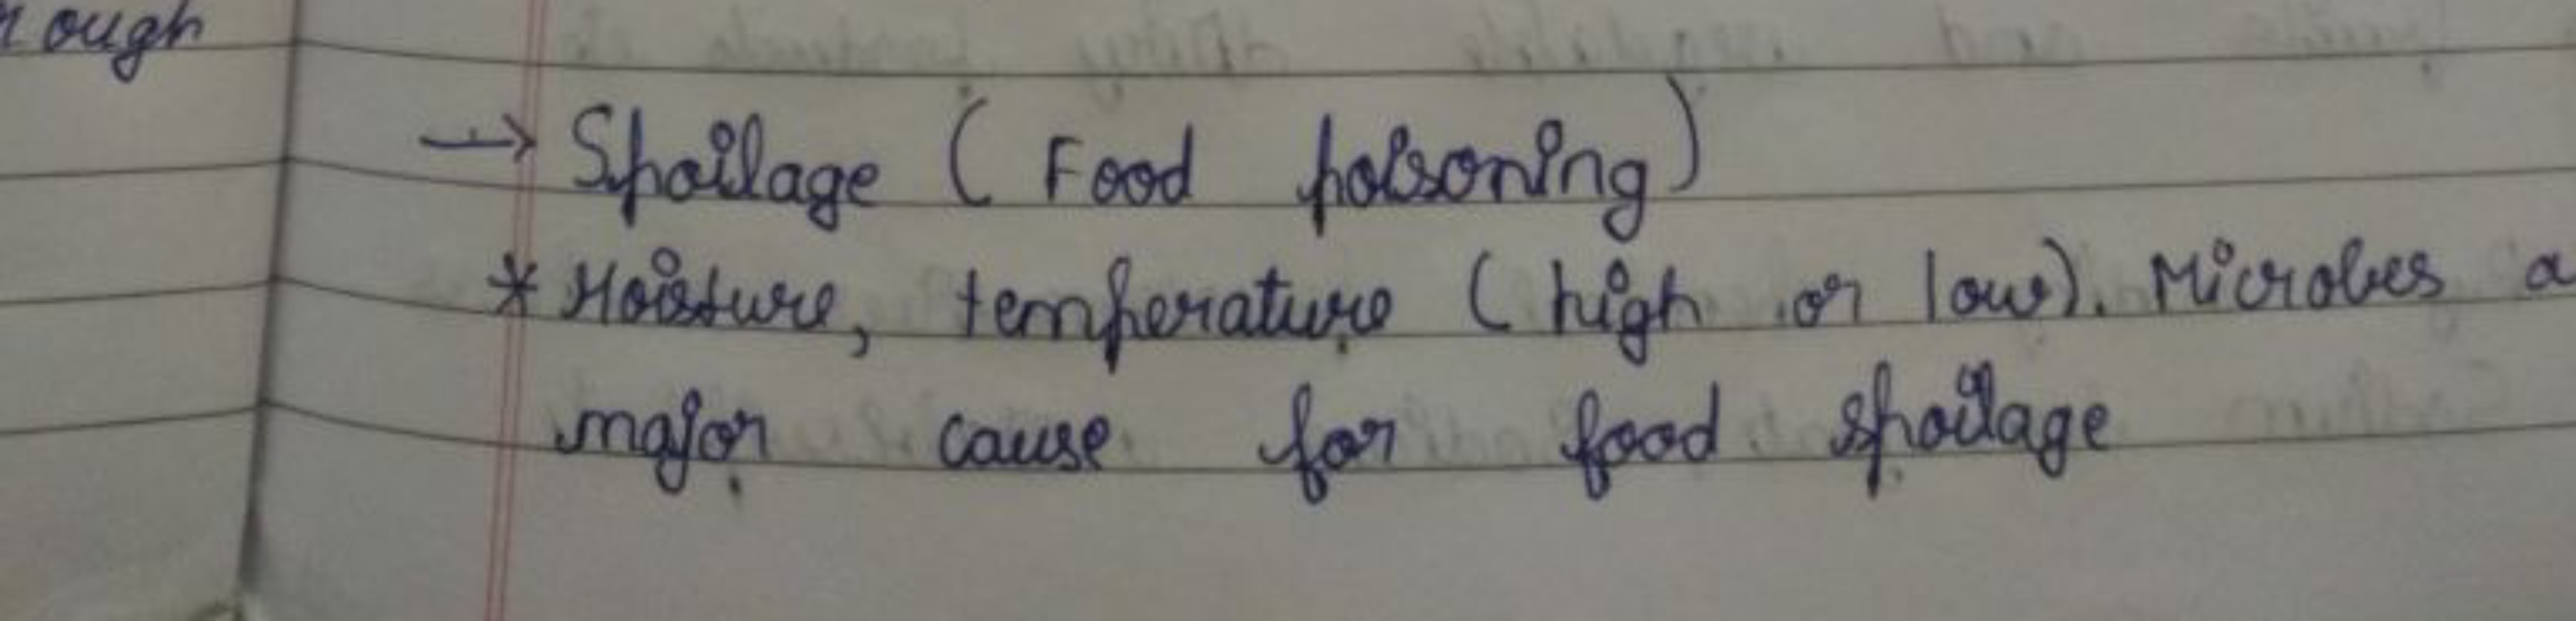 → Spoilage ( Food poisoning)
* Moisture, temperature ( high or low). Microbes a
major cause for food spoilage